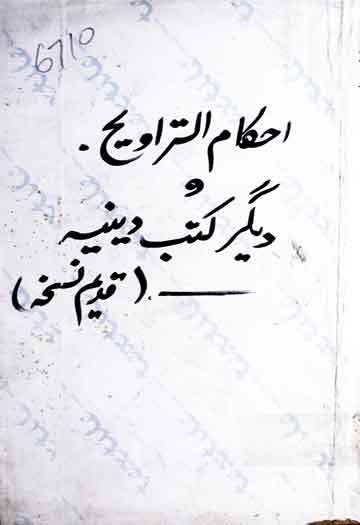 6710
احکام التراویح .
و
دیگر کتب دینیہ
ـــــــــ . ( قدیم نسخہ )